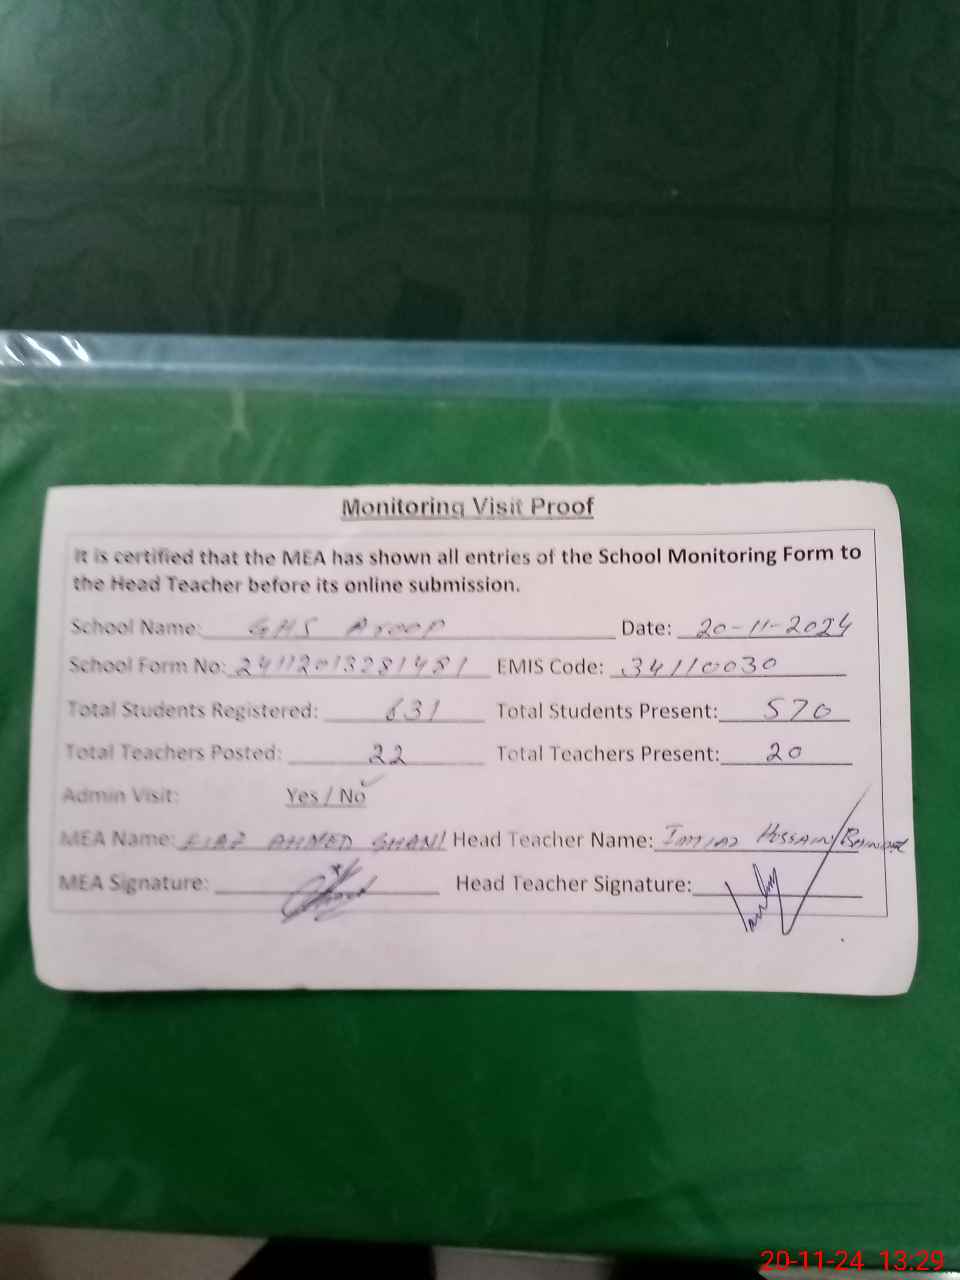 Monitoring Visit Proof
It is certified that the MEA has shown all entries of the School Monitoring Form to
the Head Teacher before its online submission.
School Name: GHS Aroop Date: 20-11-2024
School Form No: 24112013281481 EMIS Code: 34110030
Total Students Registered: 631 Total Students Present: 570
Total Teachers Posted: 22 Total Teachers Present: 20
Admin Visit: Yes / No
MEA Name: EJAZ AHMED GHANI Head Teacher Name: Imtiaz Hussain
MEA Signature: Head Teacher Signature:
20-11-24 13:29